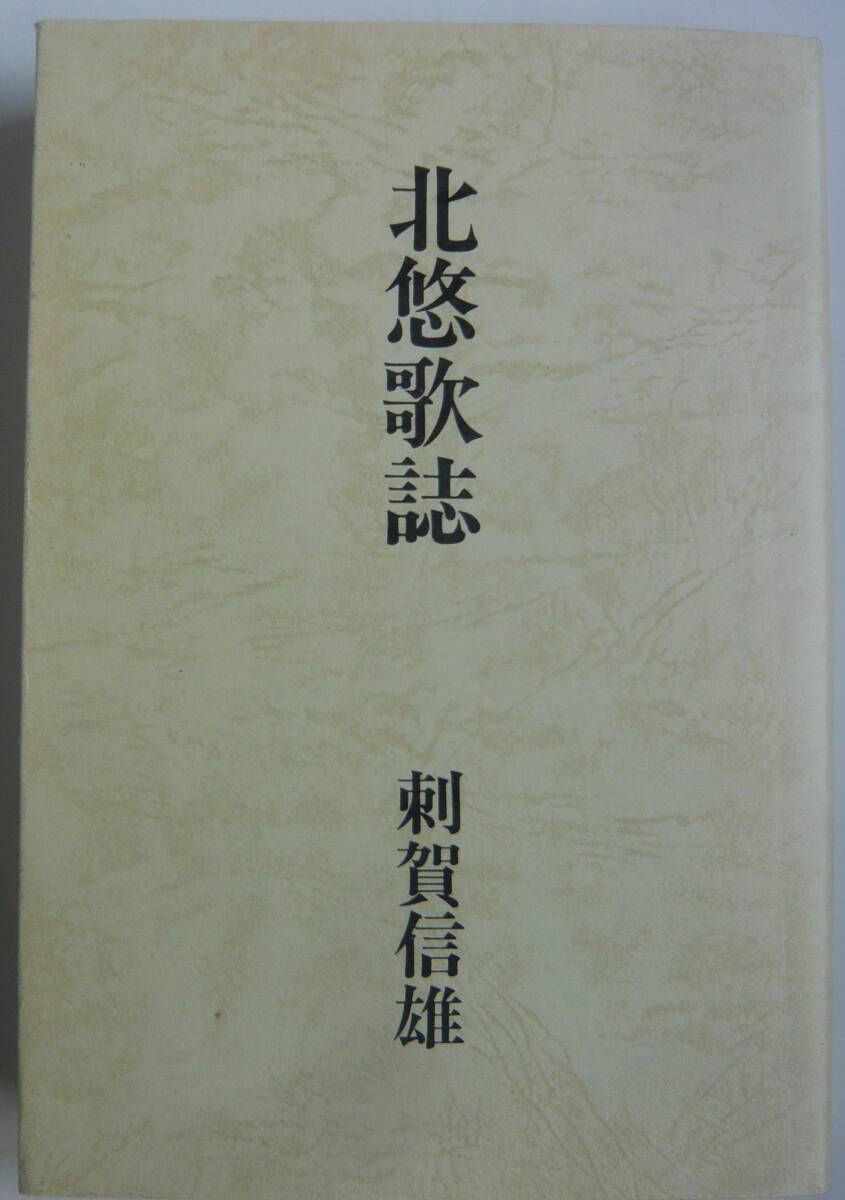 北悠歌誌
刺賀信雄